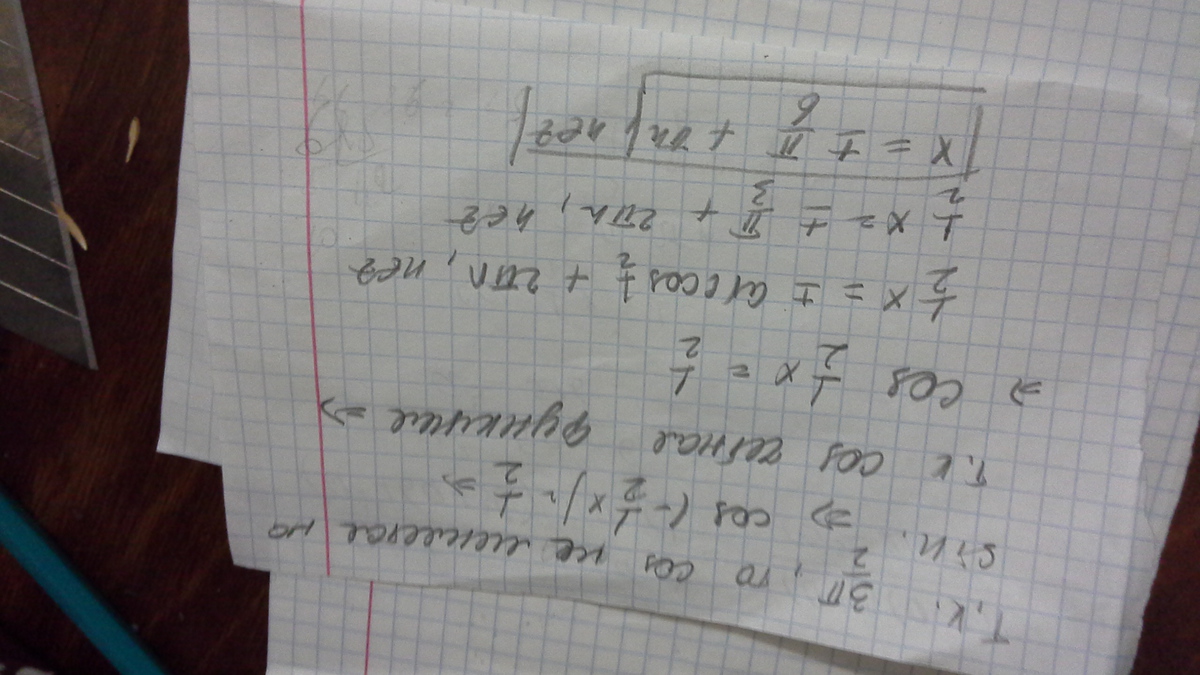 т.к. 3π/2, то cos не меняется на
sin. ⇒ cos (-1/2 x) = 1/2 ⇒
т.к cos четная функция ⇒
⇒ cos 1/2 x = 1/2
1/2 x = ± arccos 1/2 + 2πn, n∈z
1/2 x = ± π/3 + 2πn, n∈z
x = ± π/6 + πn, n∈z